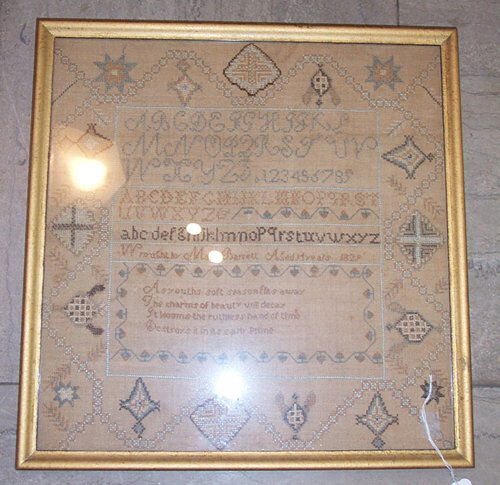 ABCDEFGHIJKL
MNOPQRSTUV
WXYZ 123456789
ABCDEFGHIKLMNOPQRST
UVWXYZ
abcdefghijklmnopqrstuvwxyz
Wrought by Barrett Aged years 182
As youths soft season flies away
The charms of beauty will decay
It blooms the ruthless hand of time
Destroys it in its early Prime